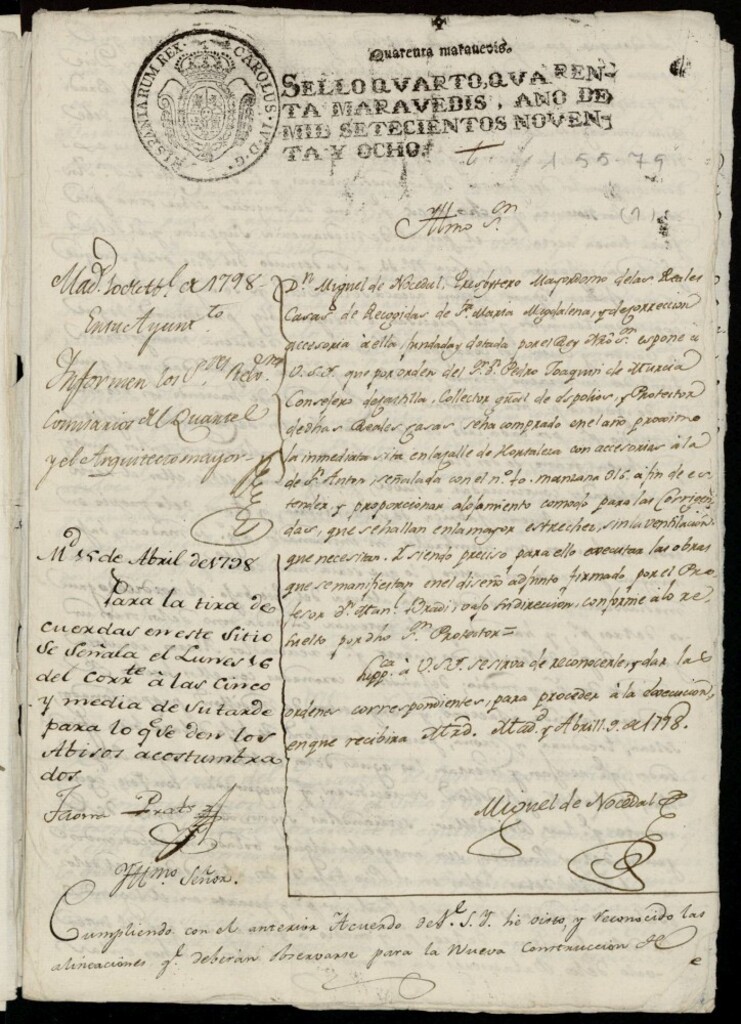 HISPANIARUM REX. CAROLUS. IV. D. G.
Quarenta marauedis.
SELLO QVARTO, QVAREN-
TA MARAVEDIS, AÑO DE
MIL SETECIENTOS NOVEN-
TA Y OCHO.
1-55-79
Yllmo Sr.
Dn. Miguel de Nocedal, Presbytero Mayordomo delas Reales
Casas de Recogidas de Sta. Maria Magdalena, y de correccion
accesoria à ella, fundada y dotada por el Rey Ntro Sr. espone à
V.S.Y. que por orden del Sr. D. Pedro Joaquin de Murcia
Consejero de Castilla, Collector gral de Espolios, y Protector
de dhas Reales Casas se ha comprado en el año proximo
la inmediata sita en la calle de Hortaleza con accesorias à la
de Sn. Anton señalada con el n.º 10. manzana 316. à fin de es
tender y proporcionar alojamiento comodo para las Corrigen
das, que se hallan en la mayor estrechez, sin la ventilacion
que necesitan. Y siendo preciso para ello executar las obras
que se manifiestan en el diseño adjunto firmado por el Pro
fesor dn. Man. Bradi, vajo su direccion, conforme à lo re
suelto por dho Sr. Protector=
Suppca. à V.S.Y. se sirva de reconocerle, y dar las
ordenes correspondientes, para proceder à la execucion,
en que recibira Mrd. Madd. y Abril 9. de 1798.
Miguel de Nocedal
Madd. 10 de Abl. de 1798
En su Ayuntto
Informen los Sres. Regres.
Comisarios del Quartel
y el Arquitecto mayor
Md. 15 de Abril de 1798
Para la tira de
cuerdas en este Sitio
se Señala el Lunes 16
del Corrte. à las Cinco
y media de su tarde
para lo que den los
Abisos acostumbra
dos
Yllmo. Señor.
Cumpliendo con el anterior Acuerdo de V.S.Y. hé visto, y reconocido las
alineaciones qe. deberán observarse para la Nueva Construccion de